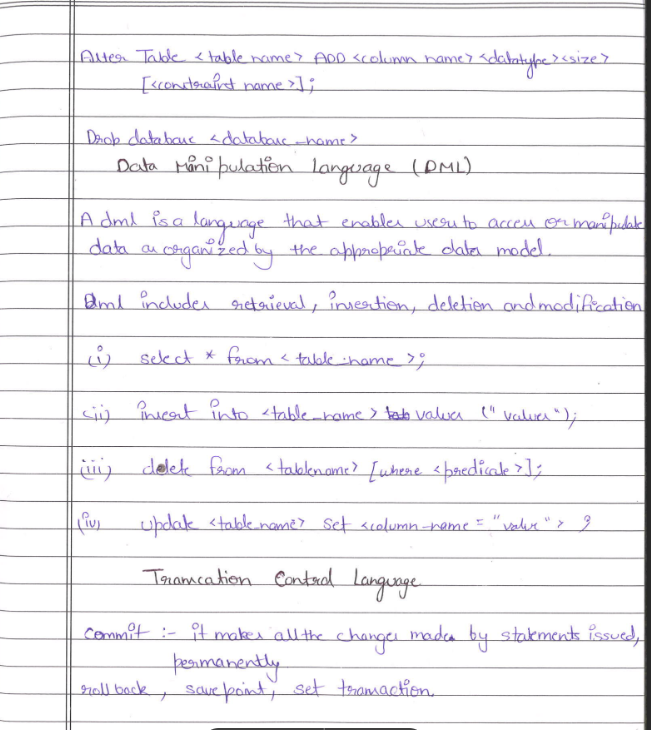 Alter Table < table name> ADD <column name> <datatype><size>
[<constraint name>];
Drop database <database_name>
Data Manipulation Language (DML)
A dml is a language that enables users to access or manipulate
data as organized by the appropriate data model.
Dml includes retrieval, insertion, deletion and modification
(i) select * from < table_name >;
(ii) insert into <table_name> values ("values");
(iii) delete from <tablename> [where <predicate>];
(iv) update <table_name> set <column_name = "value"> ;
Transcation Control Language
Commit :- it makes all the changes made by statements issued,
permanently
roll back, save point, set transaction.